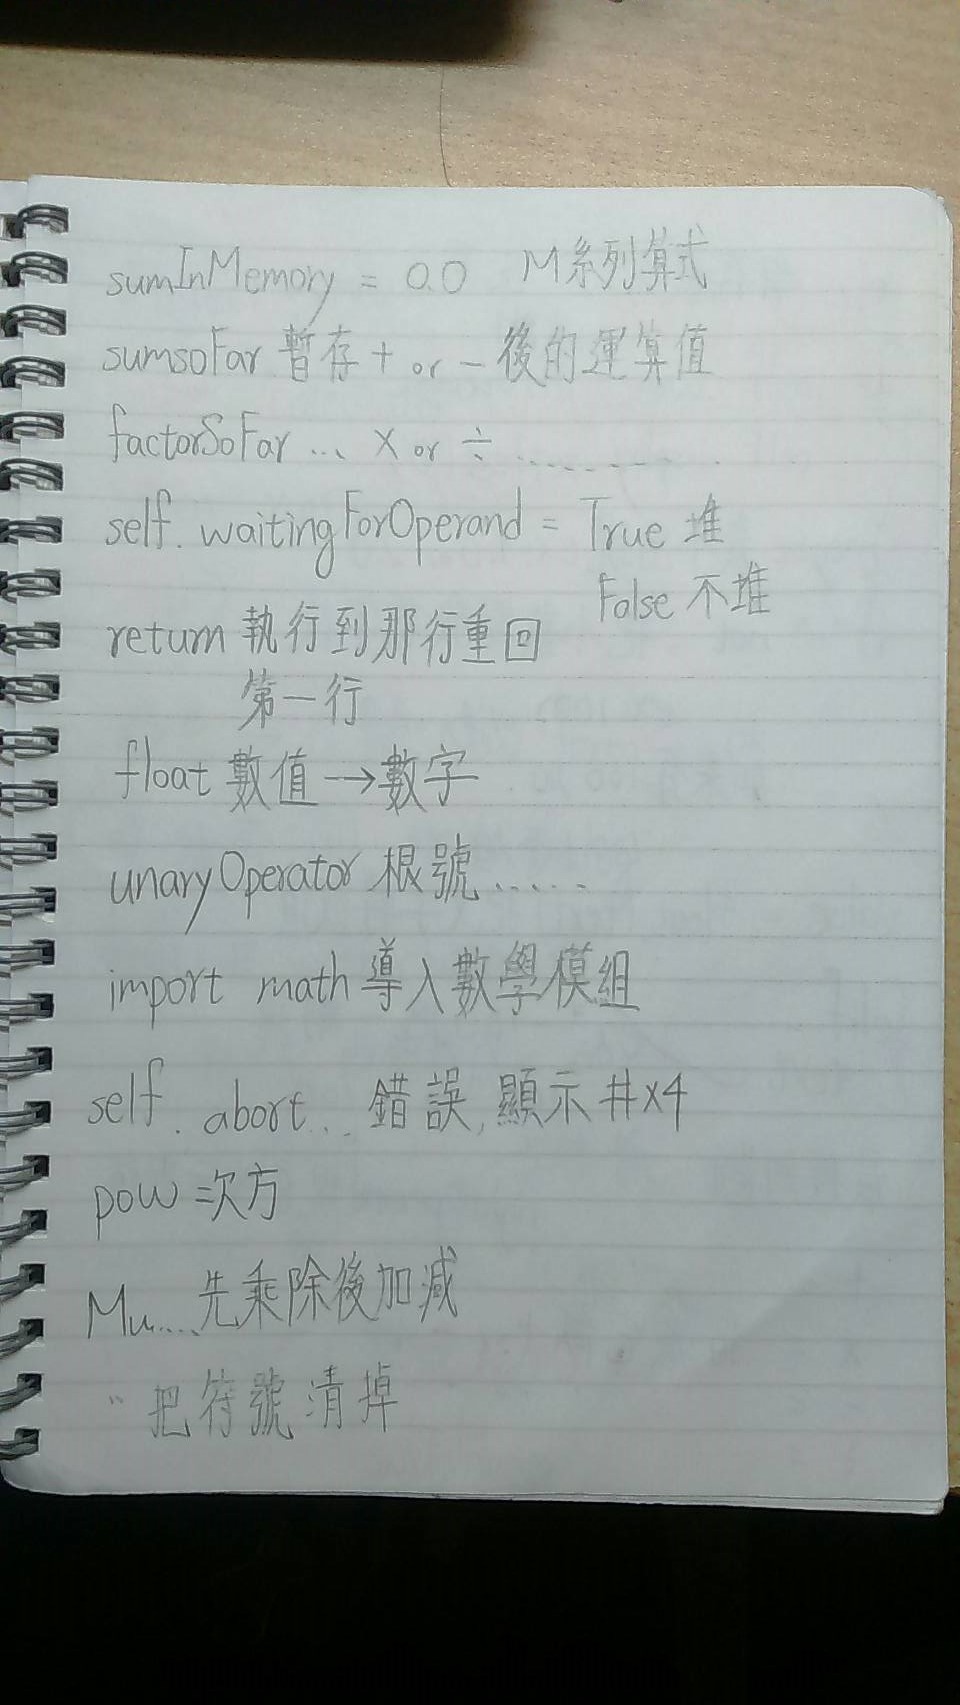 sumInMemory = 0.0 M系列算式
sumsoFar 暫存 + or - 後的運算值
factorSoFar ... × or ÷ ........
self. waitingForOperand = True 堆
False 不堆
return 執行到那行重回
第一行
float 數值→數字
unaryOperator 根號.....
import math 導入數學模組
self. abort... 錯誤,顯示#x4
pow 次方
Mu.... 先乘除後加減
" 把符號清掉